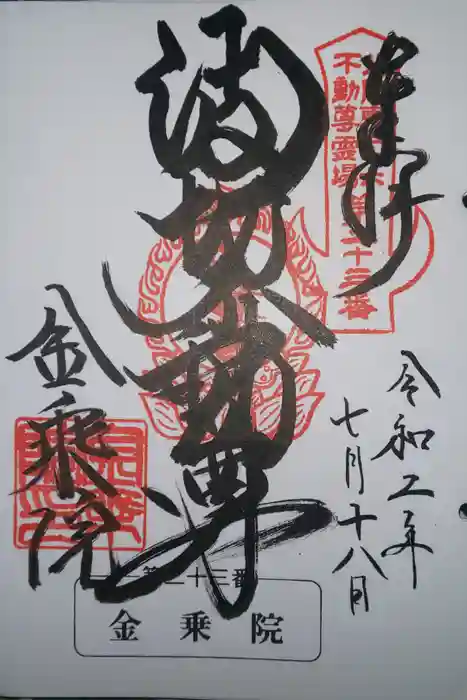 奉拝
不動尊靈場
第二十三番
波切不動尊
令和二年
七月十八日
金乗院
第二十三番
金乗院